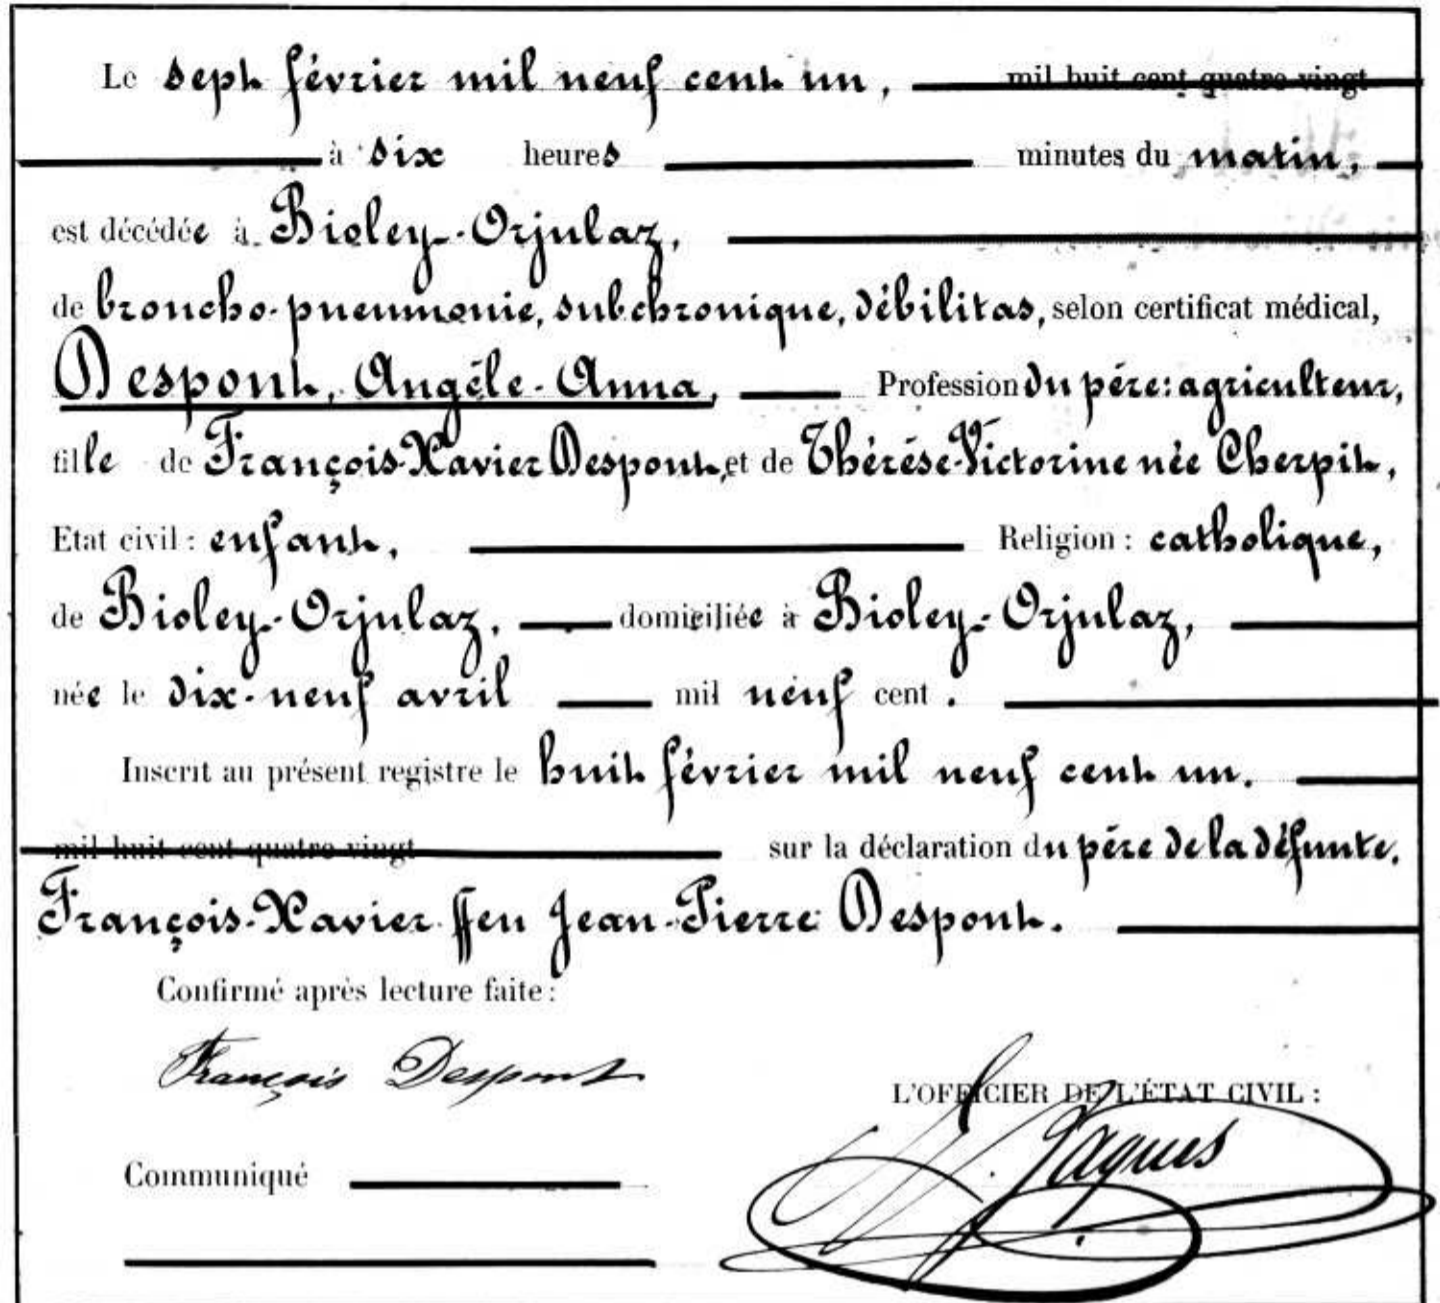 Le sept février mil neuf cent un, mil huit cent quatre vingt
à six heures minutes du matin,
est décédée à Bioley-Orjulaz,
de broncho-pneumonie, subchronique, débilitas, selon certificat médical,
Despont, Angèle-Anna, Profession du père: agriculteur,
fille de François-Xavier Despont, et de Thérèse-Victorine née Cherpit,
Etat civil : enfant, Religion : catholique,
de Bioley-Orjulaz, domiciliée à Bioley-Orjulaz,
née le dix-neuf avril mil neuf cent.
Inscrit au présent registre le huit février mil neuf cent un.
mil huit cent quatre vingt sur la déclaration du père de la défunte,
François-Xavier ffeu Jean-Pierre Despont.
Confirmé après lecture faite :
François Despont
L'OFFICIER DE L'ÉTAT CIVIL :
Jaques
Communiqué